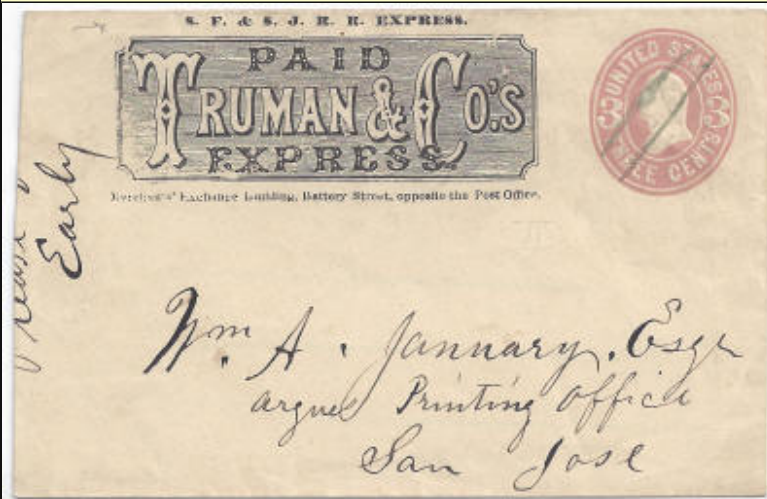 S. F. & S. J. R. R. EXPRESS.
PAID
TRUMAN & CO.'S
EXPRESS.
Merchants' Exchange Building, Battery Street, opposite the Post Office.
UNITED STATES
THREE CENTS
3 3
Please
Early
Wm A. Jannary, Esqr
argus Printing Office
San Jose